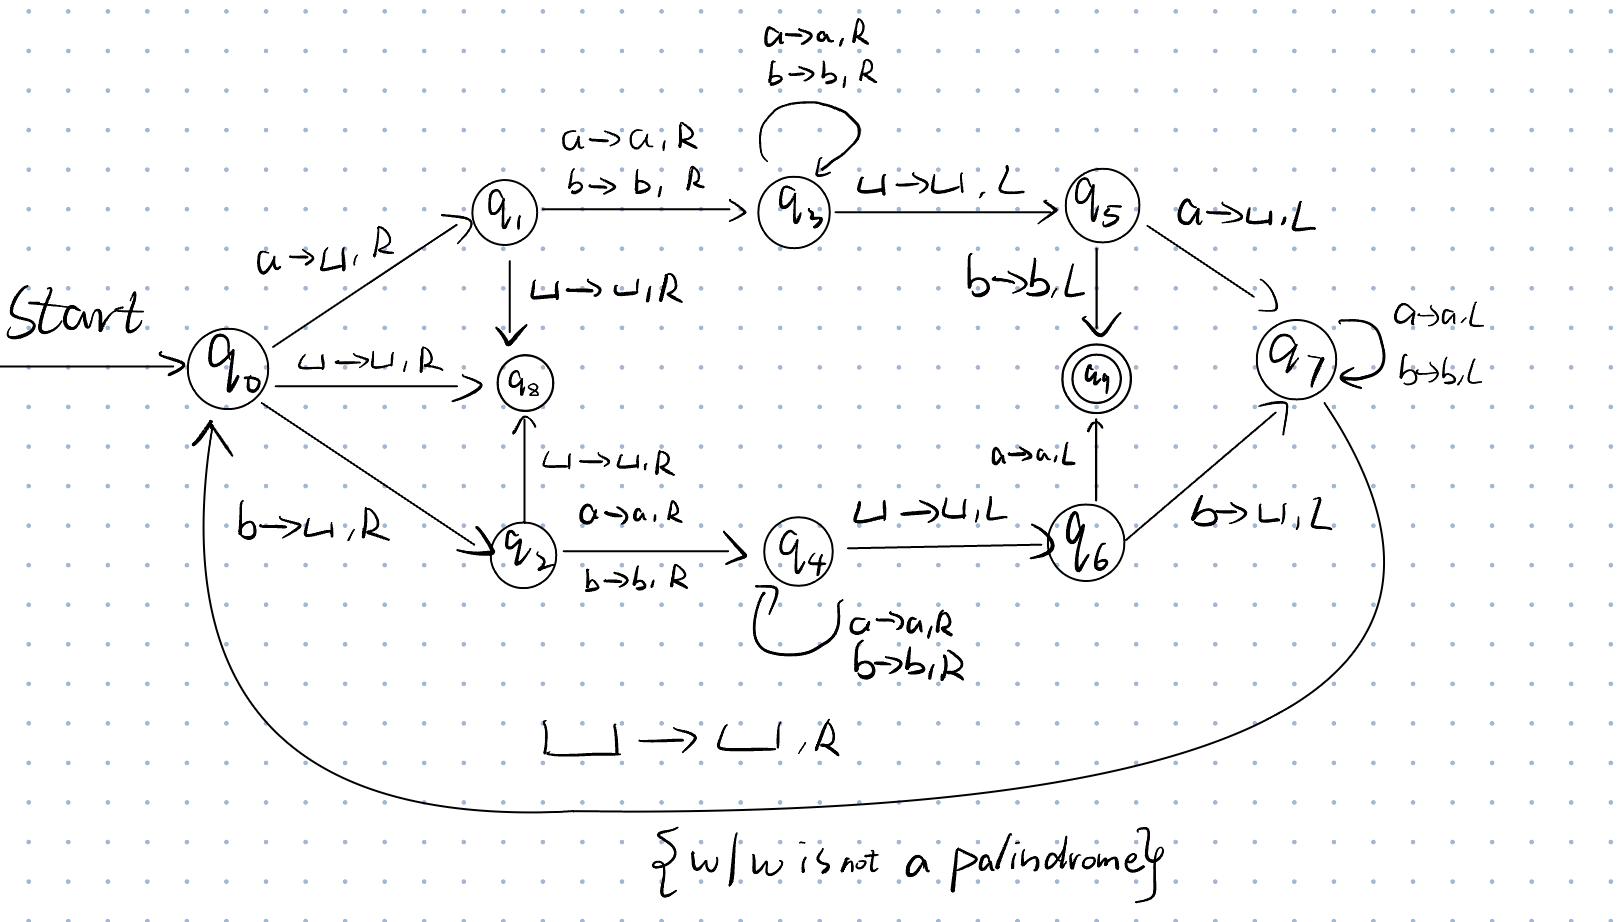 a→a, R
b→b, R
a→a, R
b→b, R
q₁
q₃
⊔→⊔, L
q₅
a→⊔, L
a→⊔, R
⊔→⊔, R
b→b, L
Start
q₀
⊔→⊔, R
q₈
q₉
q₇
a→a, L
b→b, L
⊔→⊔, R
a→a, L
b→⊔, R
q₂
a→a, R
b→b, R
q₄
⊔→⊔, L
q₆
b→⊔, L
a→a, R
b→b, R
⊔→⊔, R
{w/w is not a palindrome}